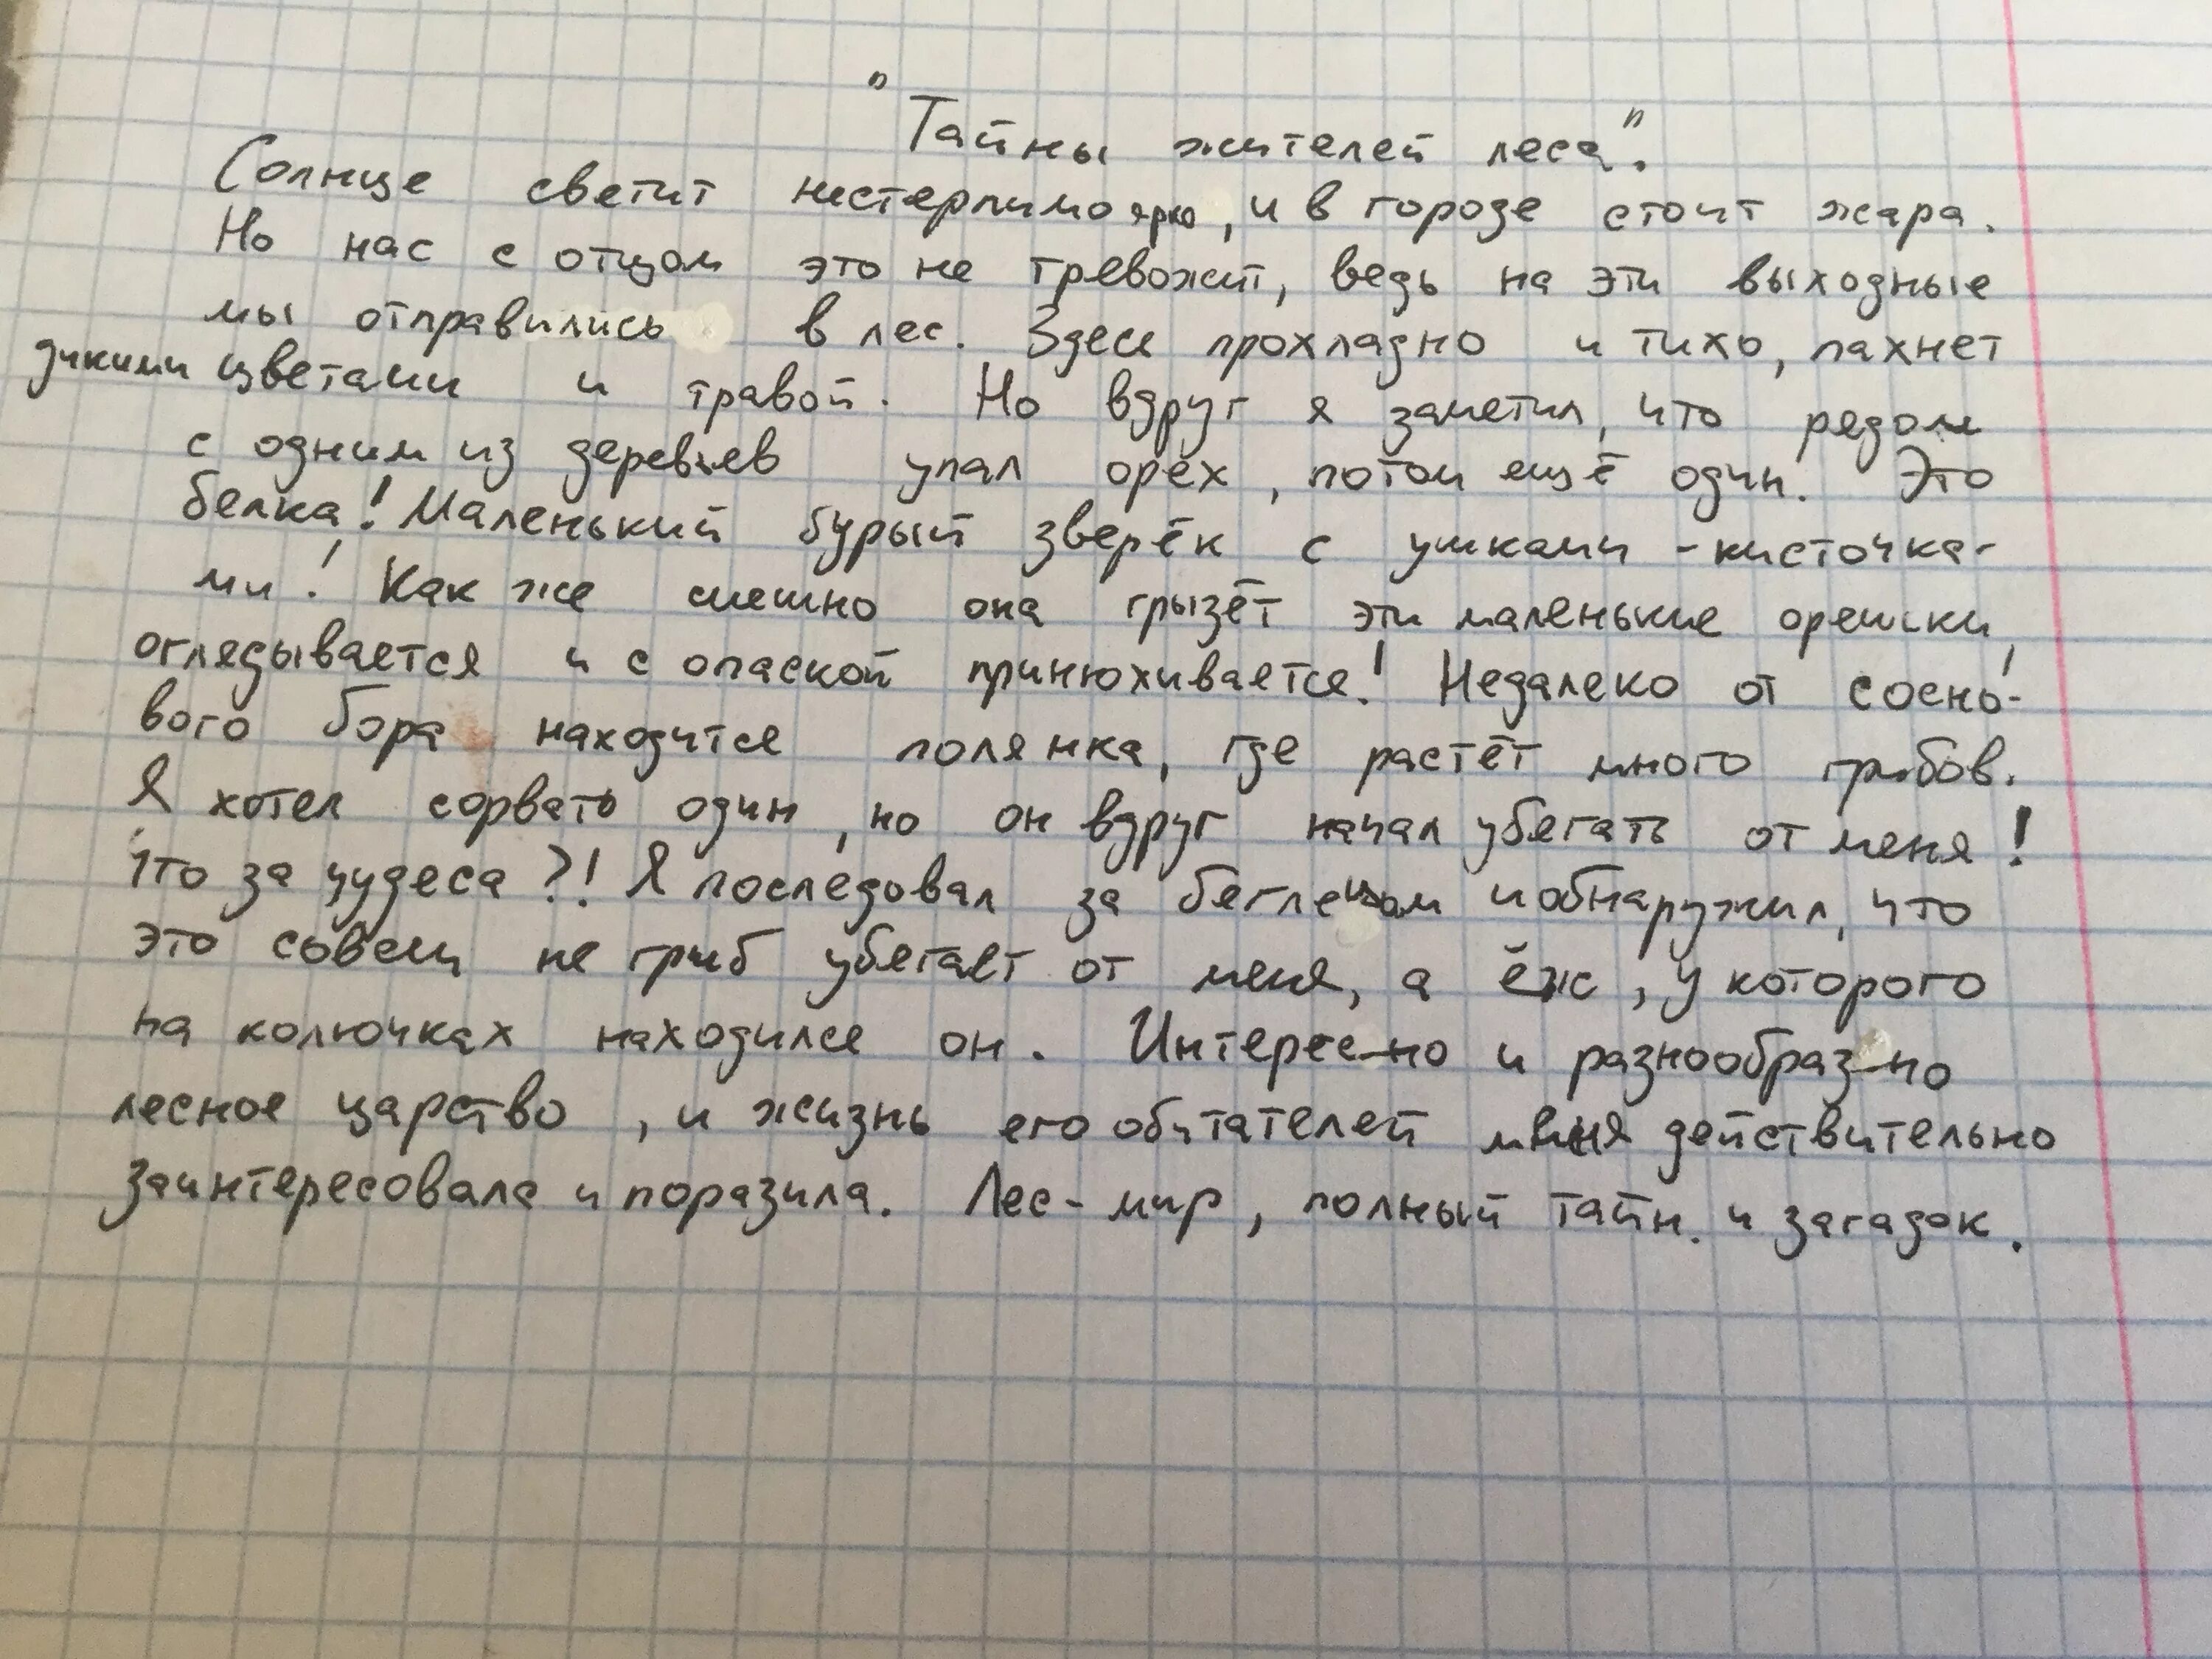 "Тайны жителей леса".
Солнце светит нестерпимо ярко, и в городе стоит жара.
Но нас с отцом это не тревожит, ведь на эти выходные
мы отправились в лес. Здесь прохладно и тихо, пахнет
дикими цветами и травой. Но вдруг я заметил, что рядом
с одним из деревьев упал орех, потом ещё один. Это
белка! Маленький бурый зверёк с ушками-кисточка-
ми! Как же смешно она грызёт эти маленькие орешки,
оглядывается и с опаской принюхивается! Недалеко от сосно-
вого бора находится полянка, где растёт много грибов.
Я хотел сорвать один, но он вдруг начал убегать от меня!
Что за чудеса?! Я последовал за беглецом и обнаружил, что
это совсем не гриб убегает от меня, а ёж, у которого
на колючках находился он. Интересно и разнообразно
лесное царство, и жизнь его обитателей меня действительно
заинтересовала и поразила. Лес-мир, полный тайн и загадок.